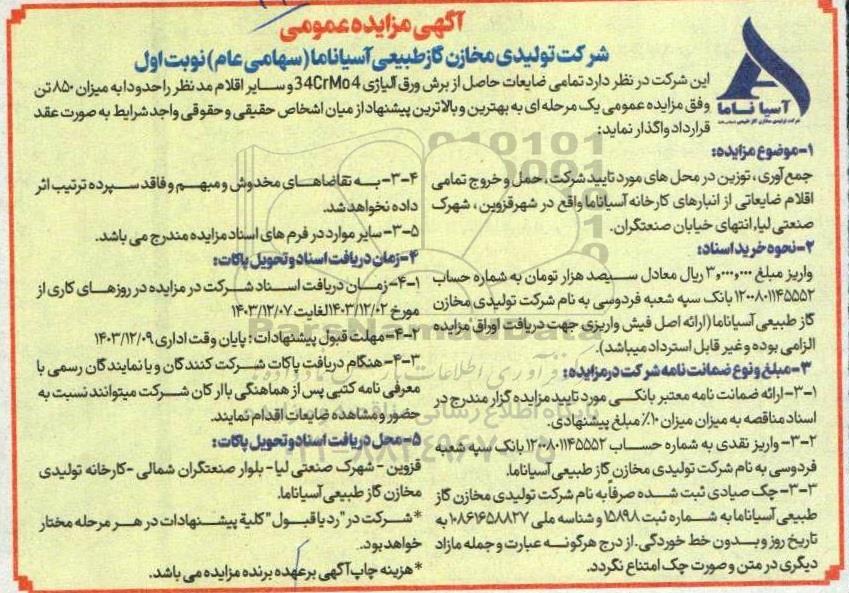 آگهی مزایده عمومی
شرکت تولیدی مخازن گاز طبیعی آسیاناما (سهامی عام) نوبت اول
آسیا ناما
این شرکت در نظر دارد تمامی ضایعات حاصل از برش ورق آلیاژی 34CrMo4 و سایر اقلام مد نظر را حدودا به میزان ۸۵۰ تن
وفق مزایده عمومی یک مرحله ای به بهترین و بالاترین پیشنهاد از میان اشخاص حقیقی و حقوقی واجد شرایط به صورت عقد
قرارداد واگذار نماید:
۱-موضوع مزایده:
جمع آوری، توزین در محل های مورد تایید شرکت، حمل و خروج تمامی
اقلام ضایعاتی از انبارهای کارخانه آسیاناما واقع در شهر قزوین، شهرک
صنعتی لیا، انتهای خیابان صنعتگران.
۲-نحوه خرید اسناد:
واریز مبلغ ۳,۰۰۰,۰۰۰ ریال معادل سیصد هزار تومان به شماره حساب
۱۲۰۰۸۰۱۱۴۵۵۵۲ بانک سپه شعبه فردوسی به نام شرکت تولیدی مخازن
گاز طبیعی آسیاناما (ارائه اصل فیش واریزی جهت دریافت اوراق مزایده
الزامی بوده و غیر قابل استرداد میباشد).
۳-مبلغ و نوع ضمانت نامه شرکت در مزایده:
۳-۱-ارائه ضمانت نامه معتبر بانکی مورد تایید مزایده گزار مندرج در
اسناد مناقصه به میزان میزان ۱۰٪ مبلغ پیشنهادی.
۳-۲- واریز نقدی به شماره حساب ۱۲۰۰۸۰۱۱۴۵۵۵۲ بانک سپه شعبه
فردوسی به نام شرکت تولیدی مخازن گاز طبیعی آسیاناما.
۳-۳-چک صیادی ثبت شده صرفاً به نام شرکت تولیدی مخازن گاز
طبیعی آسیاناما به شماره ثبت ۱۵۸۹۸ و شناسه ملی ۱۰۸۶۱۶۵۸۸۲۷ به
تاریخ روز و بدون خط خوردگی. از درج هرگونه عبارت و جمله مازاد
دیگری در متن و صورت چک امتناع گردد.
۳-۴- به تقاضاهای مخدوش و مبهم و فاقد سپرده ترتیب اثر
داده نخواهد شد.
۳-۵- سایر موارد در فرم های اسناد مزایده مندرج می باشد.
۴-زمان دریافت اسناد و تحویل پاکات:
۴-۱-زمان دریافت اسناد شرکت در مزایده در روزهای کاری از
مورخ ۱۴۰۳/۱۲/۰۲ لغایت ۱۴۰۳/۱۲/۰۷
۴-۲-مهلت قبول پیشنهادات: پایان وقت اداری ۱۴۰۳/۱۲/۰۹
۴-۳-هنگام دریافت پاکات شرکت کنندگان و یا نمایندگان رسمی با
معرفی نامه کتبی پس از هماهنگی با ارکان شرکت میتوانند نسبت به
حضور و مشاهده ضایعات اقدام نمایند.
۵-محل دریافت اسناد و تحویل پاکات:
قزوین - شهرک صنعتی لیا- بلوار صنعتگران شمالی -کارخانه تولیدی
مخازن گاز طبیعی آسیاناما.
*شرکت در "رد یا قبول" کلیة پیشنهادات در هر مرحله مختار
خواهد بود.
*هزینه چاپ آگهی برعهده برنده مزایده می باشد.
ParsNamadData